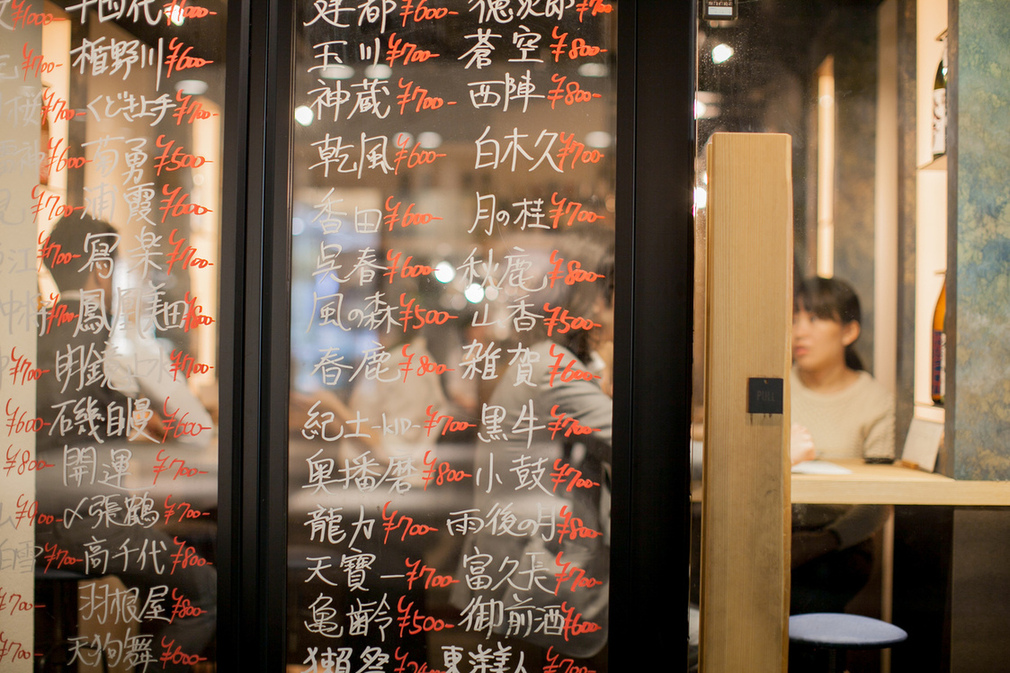 ¥1000-
十四代
¥700-
楯野川 ¥600-
¥700- くどき上手 ¥700-
¥600- 百勇 ¥500-
¥700- 浦霞 ¥600-
¥700- 冩楽 ¥700-
¥700- 鳳凰美田 ¥800-
¥700- 明鏡止水 ¥700-
¥600- 石磯自慢 ¥600-
¥800- 開運 ¥700-
¥900- 〆張鶴 ¥700-
白雪 ¥700- 高千代 ¥800-
¥700- 羽根屋 ¥800-
¥700- 天狗舞 ¥600-
建都 ¥600-
玉川 ¥700- 蒼空 ¥800-
神蔵 ¥700- 西陣 ¥800-
乾風 ¥600- 白木久 ¥700-
香田 ¥600- 月の桂 ¥700-
呉春 ¥600- 秋鹿 ¥800-
風の森 ¥500- 山香 ¥500-
春鹿 ¥800- 雑賀 ¥600-
紀土-KID- ¥700- 黒牛 ¥700-
奥播磨 ¥800- 小鼓 ¥700-
龍力 ¥700- 雨後の月 ¥800-
天寶一 ¥700- 富久長 ¥700-
亀齢 ¥500- 御前酒 ¥600-
獺祭 東洋美人 ¥700-
PULL